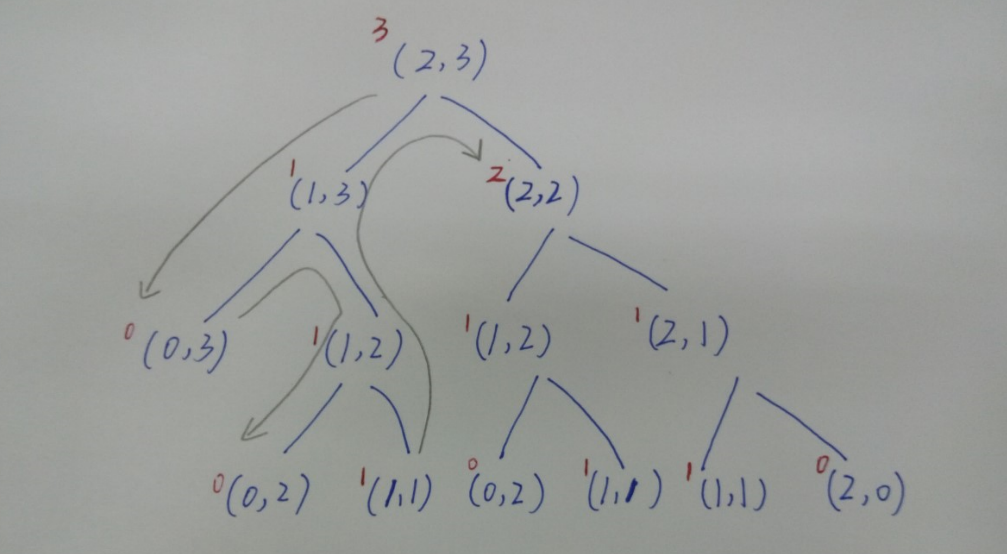 3
(2,3)
1 (1,3) 2 (2,2)
0 (0,3) 1 (1,2) 1 (1,2) 1 (2,1)
0 (0,2) 1 (1,1) 0 (0,2) 1 (1,1) 1 (1,1) 0 (2,0)